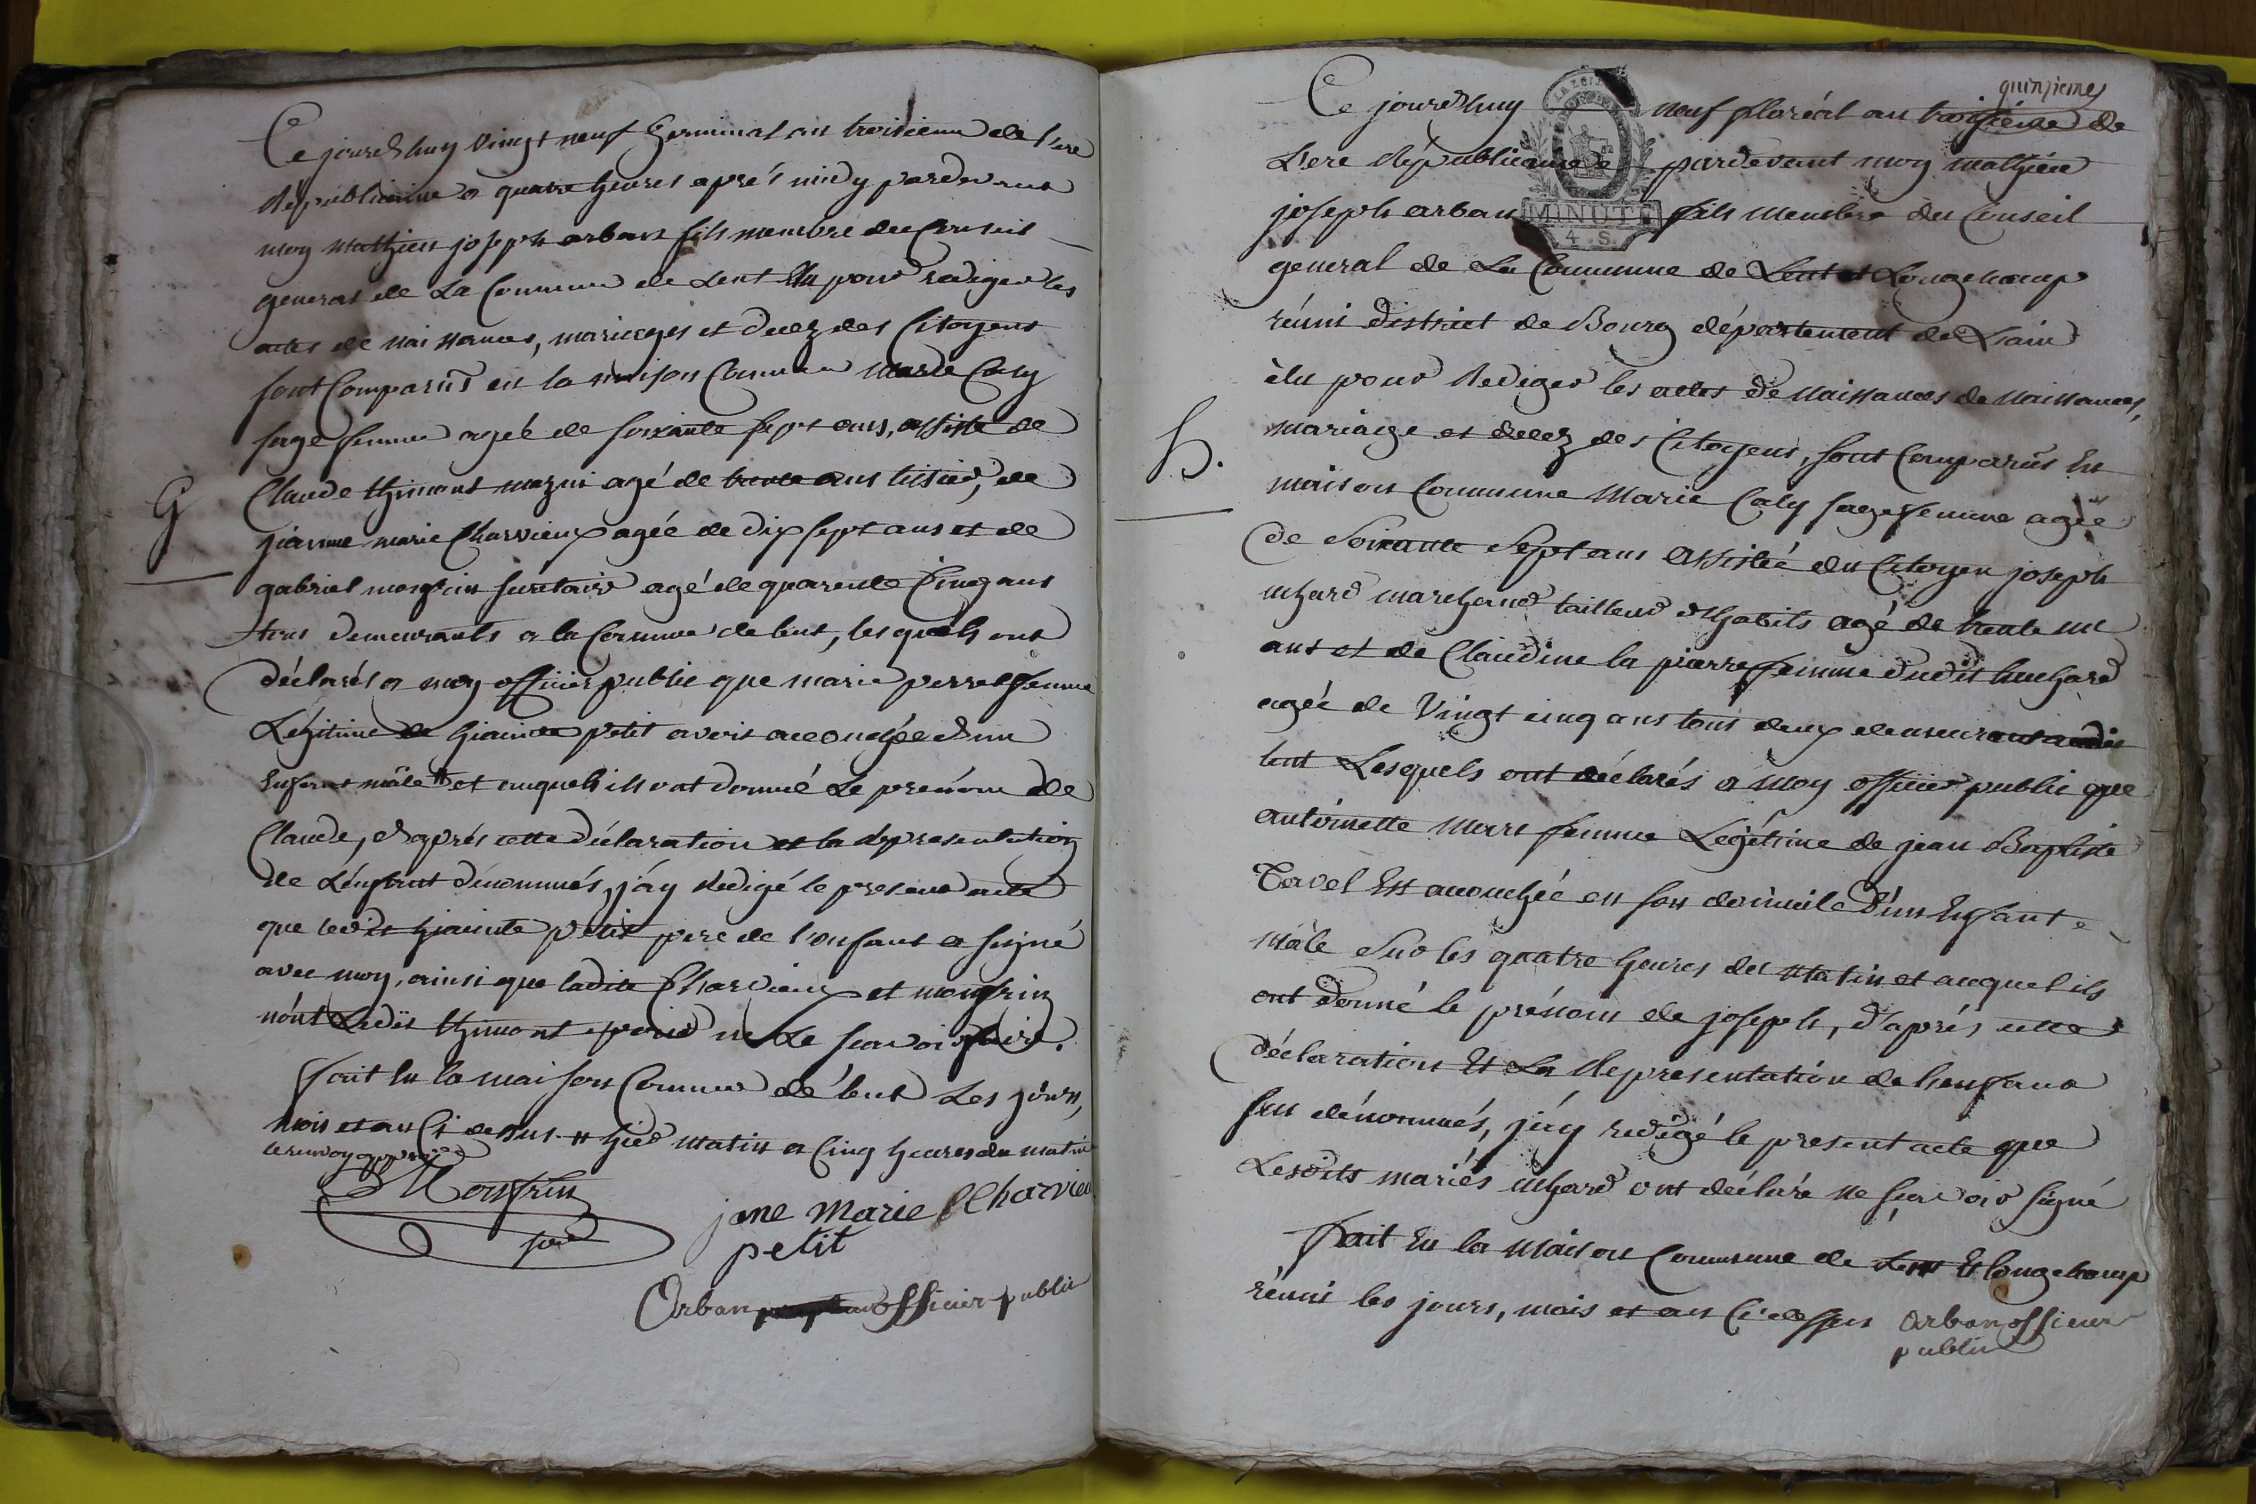 Ce jourdhuy vingt neuf Germinal an troisieme de l'ere
Republicaine a quatre heures aprés midy pardevant
moy mathieu joseph orban fils membre du Conseil
general de La Commune de Lent Elu pour rediger les
actes de naissances, mariages et decez des Citoyens
sont Comparus en la maison Commune Marie Caly
sage femme agée de soixante sept ans, assisté de
G
Claude thimont mazui agé de trente ans tissier, de
jeanne marie Charvieux agée de dix sept ans et de
gabriel monfrin secretaire agé de quarente Cinq ans
tous demeurants a la Commune de lent, lesquels ont
déclarés a moy officier public que marie perret femme
Légitime de hiacinte petit avoir accouchée d'un
Enfant mâle # et auquel ils ont donné Le prenóm de
Claude, d'aprés cette déclaration et la representation
de L'enfant dénommés, j'ay Redigé le present acte
que ledit hiacinte petit pere de l'enfant a signé
avec moy, ainsi que ladite Charvieux et monfrin
nónt Ledit thimont pour ne Le scavoir faire.
fait En la maison Commune de lent Les jours,
mois et an Ci dessus. # hier matin a Cinq heures du matin
le renvoy approuvé
Monfrin
sre
jane marie Charvieu
petit
Orban officier public
quinziemes
Ce jourdhuy neuf floréal an troisiéme de
L'ere Républicaine pardevant moy mathieu
LA LOI
MINUTE
4. S.
joseph orban fils membre du Conseil
general de La Commune de Lent et Longchamp
réuni district de Bourg département de L'ain
élu pour Rediger les actes de naissances de naissances,
mariage et decez des Citoyens, sont Comparus En
h.
maison Commune Marie Caly sage femme agée
de Soixante Sept ans assistée du Citoyen joseph
uchard marchand tailleur d'habits agé de trente un
ans et de Claudine la pierre femme dudit huchard
agée de Vingt cinq ans tous deux demeurans audit
lent Lesquels ont déclarés a moy officier public que
antóinette mars femme Légitime de jean Baptiste
Tavel Est accouchée en son domicile d'un Enfant
mâle Sur les quatre heures du Matin et auquel ils
ont donné le prénom de joseph, d'aprés cette
déclaration Et La Representation de l'enfant
sus dénommés, j'ay redigé le present acte que
Lesdits mariés uchard ont déclaré ne scavoir signé
fait En la maison Commune de Lent Et longchamp
réuni les jours, mois et an Ci dessus Orban officier
public